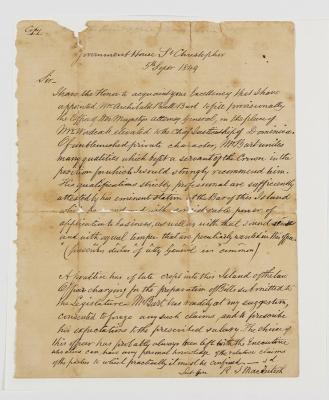 Copy
Government House St Christopher
5th Sepr 1849
Sir.
I have the Honor to acquaint your Excellency that I have
appointed Mr Archibald Burt to fill provisionally
the Office of Her Majestys attorney General, in the place of
Mr Woodcock elevated to the Chief Justiceship of Dominica.
Of unblemished private character, Mr Burt unites
many qualities which befit a servant of the Crown in the
position for which I would strongly recommend him.
His qualifications strictly professional are sufficiently
attested by his eminent station at the Bar of this Island
with considerable power of
application to business, as well as with that sound
and with equal temper that are pecularly wanted in this
duties of atty General in common)
A practice has of late crept into this Island of the law
Officer charging for the preparation of Bills submitted to
the Legislature. Mr Burt has readily at my suggestion,
consented to forego any such claims, and to prescribe
his expectations to the prescribed salary. The choice of
this officer has probably always been left with the Executive
can have any personal knowledge of the relative claims
of the parties to which practically it must be confined
R J Mackintosh